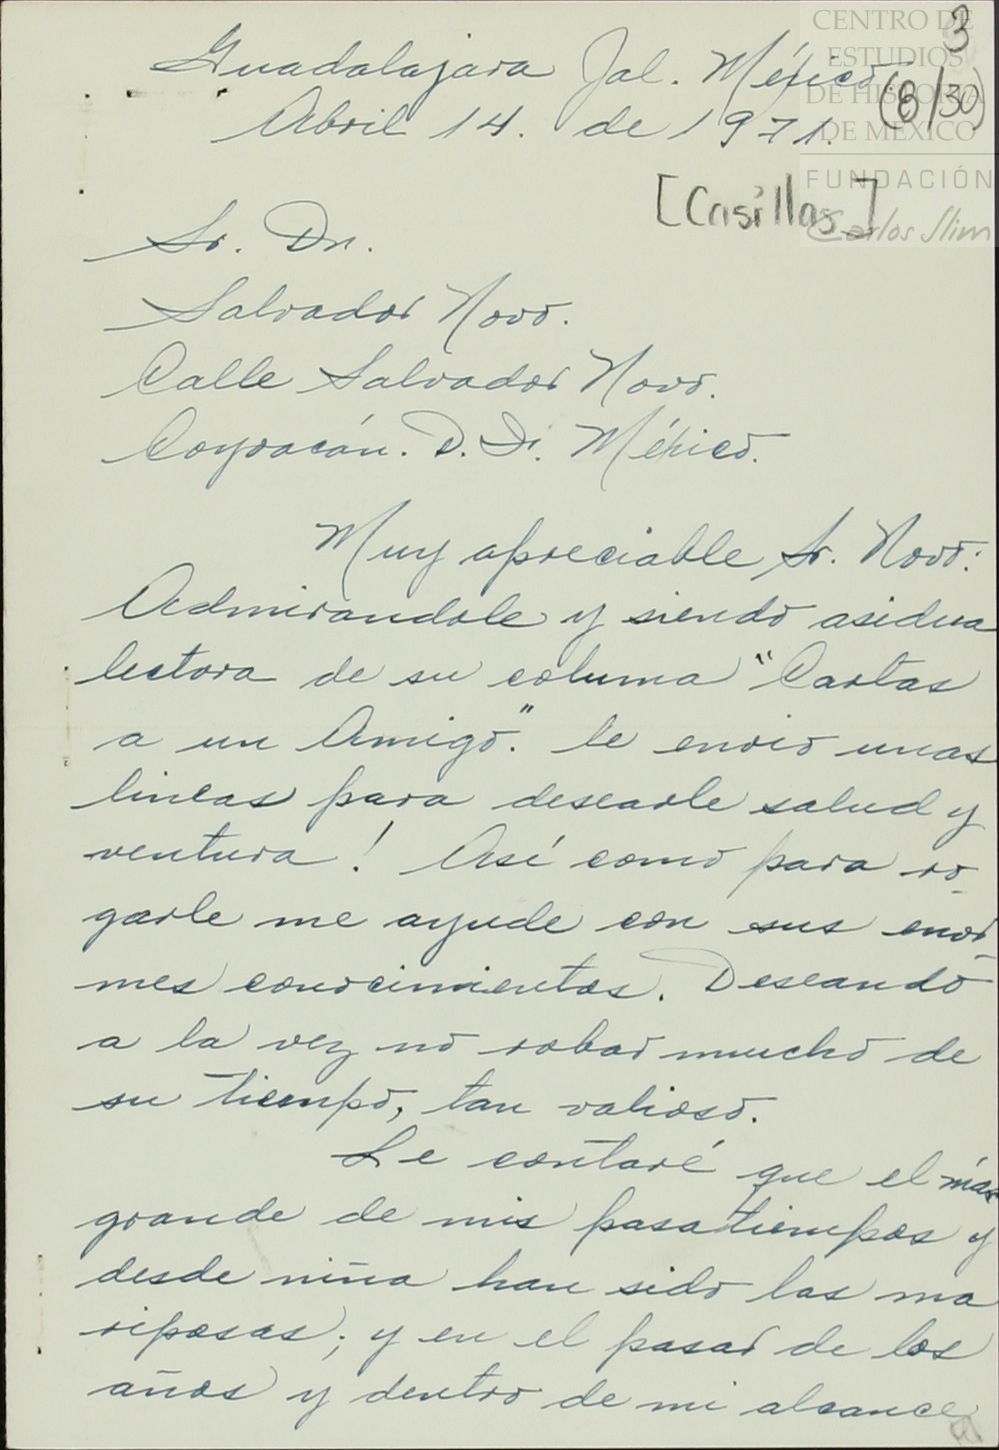 CENTRO DE
ESTUDIOS
DE HISTORIA
DE MEXICO
FUNDACIÓN
Carlos Slim
3
(8/30)
Guadalajara Jal. México.
Abril 14. de 1971.
[Casillas]
Sr. Dn.
Salvador Novo.
Calle Salvador Novo.
Coyoacán. D. F. México.
Muy apreciable Sr. Novo:
Admirandole y siendo asidua
lectora de su columa "Cartas
a un Amigo." le envio unas
lineas para desearle salud y
ventura! Así como para ro-
garle me ayude con sus enor-
mes conocimientos. Deseando
a la vez no robar mucho de
su tiempo, tan valioso.
Le contaré que el más
grande de mis pasatiempos y
desde niña han sido las ma
riposas; y en el pasar de los
años y dentro de mi alcance